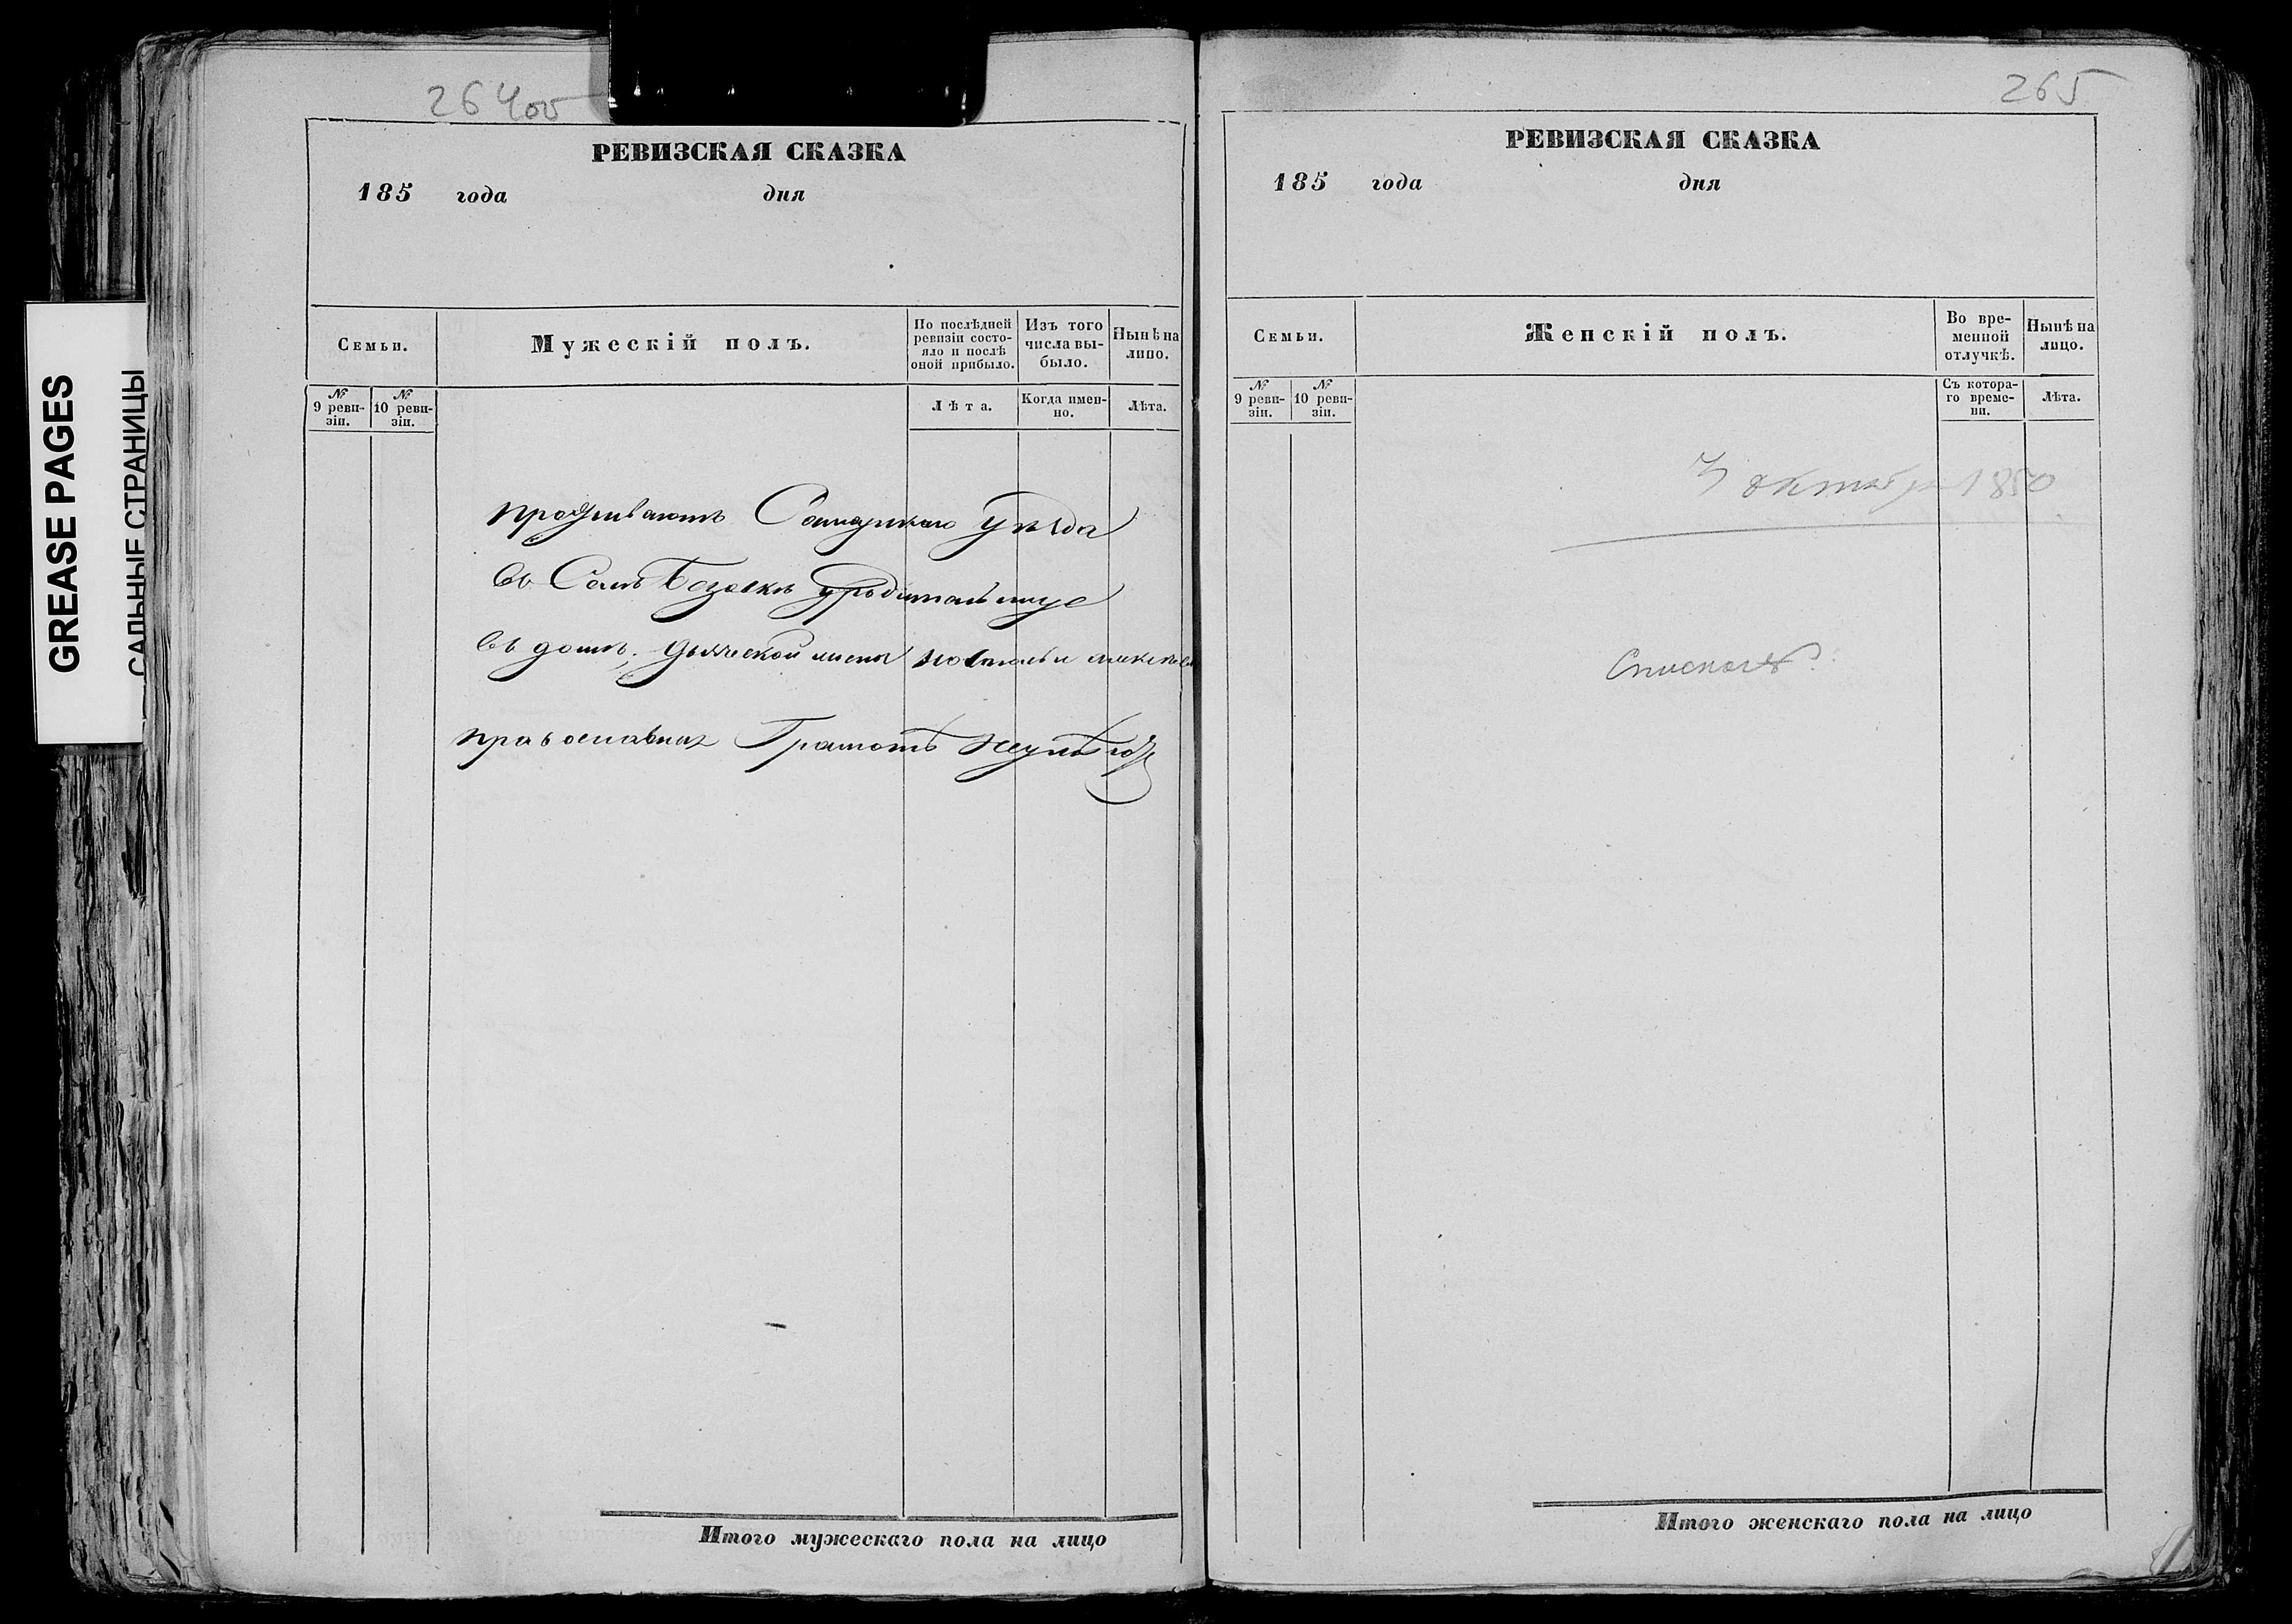 GREASE PAGES
САЛЬНЫЕ СТРАНИЦЫ
264об
РЕВИЗСКАЯ СКАЗКА
185 года дня
Семьи.
Мужескій полъ.
По послѣдней ревизіи состояло и послѣ оной прибыло.
Изъ того числа выбыло.
Нынѣ на лицо.
№ 9 ревизіи.
№ 10 ревизіи.
Лѣта.
Когда именно.
Лѣта.
проживаютъ уѣзда
въ Селѣ
въ домѣ,
православных Грамотѣ
Итого мужескаго пола на лицо
265
РЕВИЗСКАЯ СКАЗКА
185 года дня
Семьи.
Женскій полъ.
Во временной отлучкѣ.
Нынѣ на лицо.
№ 9 ревизіи.
№ 10 ревизіи.
Съ котораго времени.
Лѣта.
октябр 1850
Итого женскаго пола на лицо